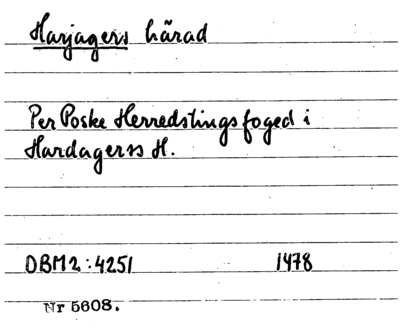 Harjagers härad
Per Poske Herredstings foged i
Hardagerss H.
DBM2:4251 1478
Nr 5608.